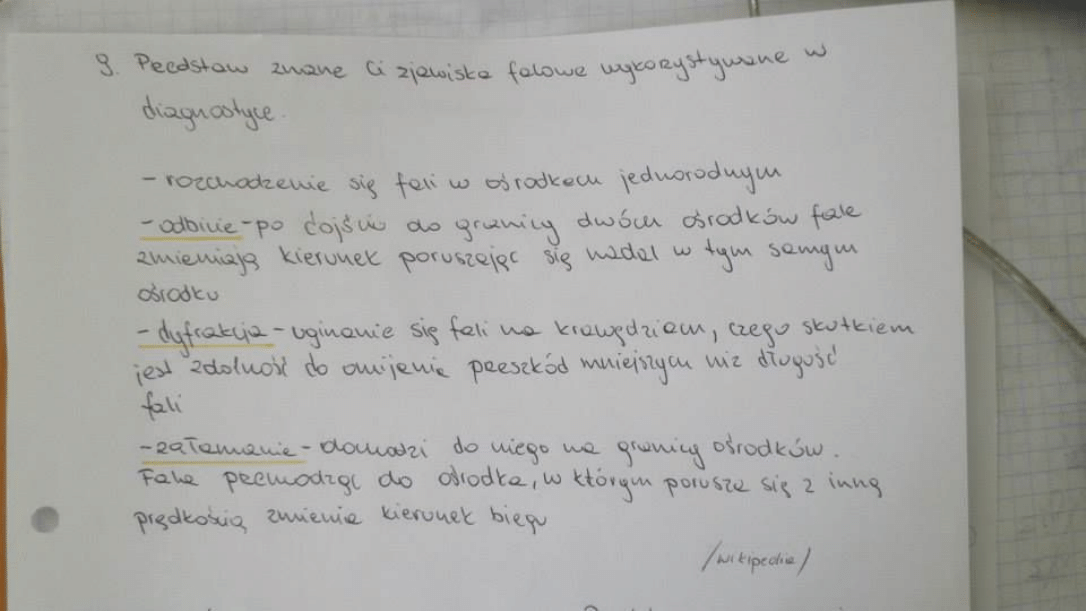 9. Peedstaw znane Ci zjawiska falowe wykorzystywane w
diagnostyce.
- rozchodzenie się fali w ośrodkach jednorodnym
- odbicie - po dojściu do granicy dwóch ośrodków fale
zmieniają kierunek poruszając się nadal w tym samym
ośrodku
- dyfrakcja - uginanie się fali na krawędziach, czego skutkiem
jest zdolność do omijania przeszkód mniejszych niż długość
fali
- załamanie - dochodzi do niego na granicy ośrodków.
Fala pechodząc do ośrodka, w którym porusza się z inną
prędkością zmienia kierunek biegu
/wikipedia/